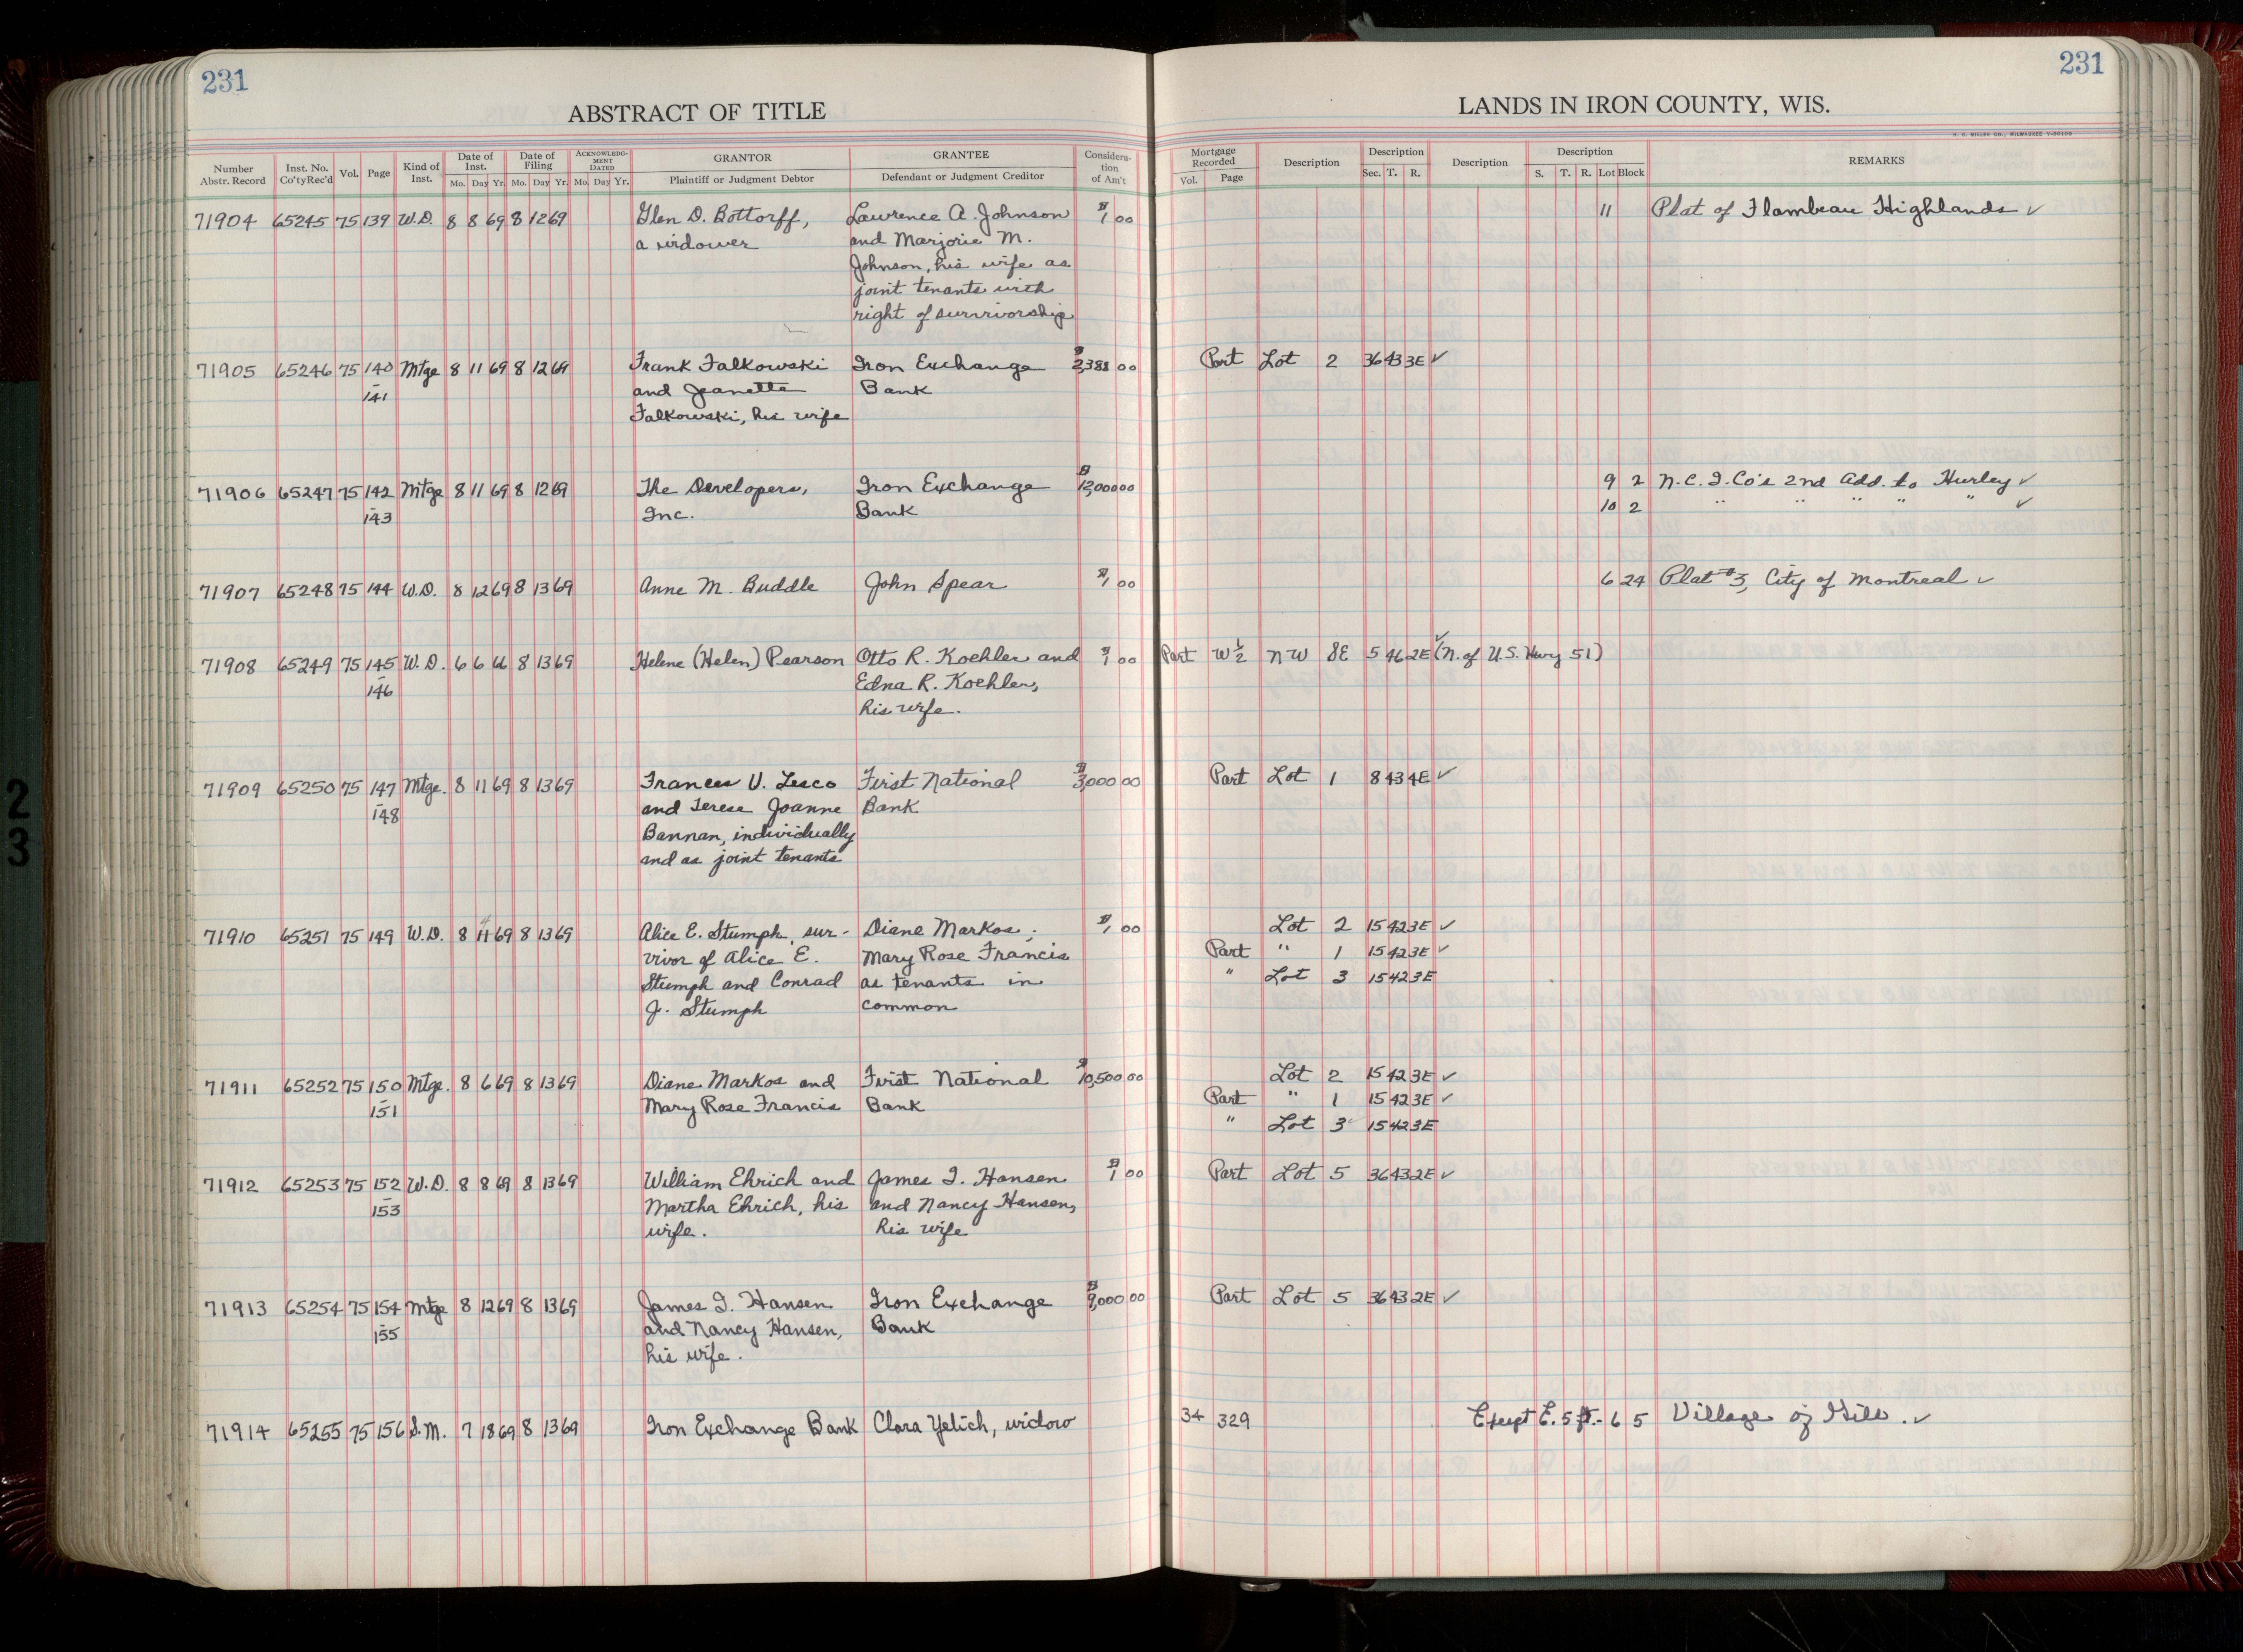 231
231
ABSTRACT OF TITLE
LANDS IN IRON COUNTY, WIS.
H. C. MILLER CO., MILWAUKEE
Number Abstr. Record | Inst. No. Co'ty Rec'd | Vol. | Page | Kind of Inst. | Date of Inst. Mo. Day Yr. | Date of Filing Mo. Day Yr. | ACKNOWLEDGMENT DATED Mo. Day Yr. | GRANTOR Plaintiff or Judgment Debtor | GRANTEE Defendant or Judgment Creditor | Consideration of Am't | Mortgage Recorded Vol. Page | Description | Description Sec. T. R. | Description | Description S. T. R. Lot Block | REMARKS
71904 65245 75 139 W.D. 8 8 69 8 12 69 Glen D. Bottorff, Lawrence A. Johnson $1 00 11 Plat of Flambeau Highlands ✓
a widower and Marjorie M.
Johnson, his wife as
joint tenants with
right of survivorship
71905 65246 75 140 Mtge 8 11 69 8 12 69 Frank Falkowski Iron Exchange $2,388 00 Part Lot 2 36 43 3E ✓
- 141 and Jeanette Bank
Falkowski, his wife
71906 65247 75 142 Mtge 8 11 69 8 12 69 The Developers, Iron Exchange $12,000 00 9 2 N.C.I.Co's 2nd Add. to Hurley ✓
- 143 Inc. Bank 10 2 " " " " " ✓
71907 65248 75 144 W.D. 8 12 69 8 13 69 Anne M. Buddle John Spear $1 00 6 24 Plat #3, City of Montreal ✓
71908 65249 75 145 W.D. 6 6 66 8 13 69 Helene (Helen) Pearson Otto R. Koehler and $1 00 Part W½ NW SE 5 46 2E ✓ (N. of U.S. Hwy 51)
- 146 Edna R. Koehler,
his wife.
71909 65250 75 147 Mtge. 8 11 69 8 13 69 Frances V. Lesco First National $3,000 00 Part Lot 1 8 43 4E ✓
- 148 and Terese Joanne Bank
Bannan, individually
and as joint tenants
71910 65251 75 149 W.D. 8 11 4 69 8 13 69 Alice E. Stumph, sur- Diane Markos; $1 00 Lot 2 15 42 3E ✓
vivor of Alice E. Mary Rose Francis Part " 1 15 42 3E ✓
Stumph and Conrad as tenants in " Lot 3 15 42 3E
J. Stumph common
71911 65252 75 150 Mtge. 8 6 69 8 13 69 Diane Markos and First National $10,500 00 Lot 2 15 42 3E ✓
- 151 Mary Rose Francis Bank Part " 1 15 42 3E ✓
" Lot 3 15 42 3E
71912 65253 75 152 W.D. 8 8 69 8 13 69 William Ehrich and James I. Hansen $1 00 Part Lot 5 36 43 2E ✓
- 153 Martha Ehrich, his and Nancy Hansen,
wife. his wife
71913 65254 75 154 Mtge 8 12 69 8 13 69 James I. Hansen Iron Exchange $9,000 00 Part Lot 5 36 43 2E ✓
- 155 and Nancy Hansen, Bank
his wife.
71914 65255 75 156 S.M. 7 18 69 8 13 69 Iron Exchange Bank Clara Yelich, widow 34 329 Except E. 5 ft. - 6 5 Village of Gile. ✓
2
3